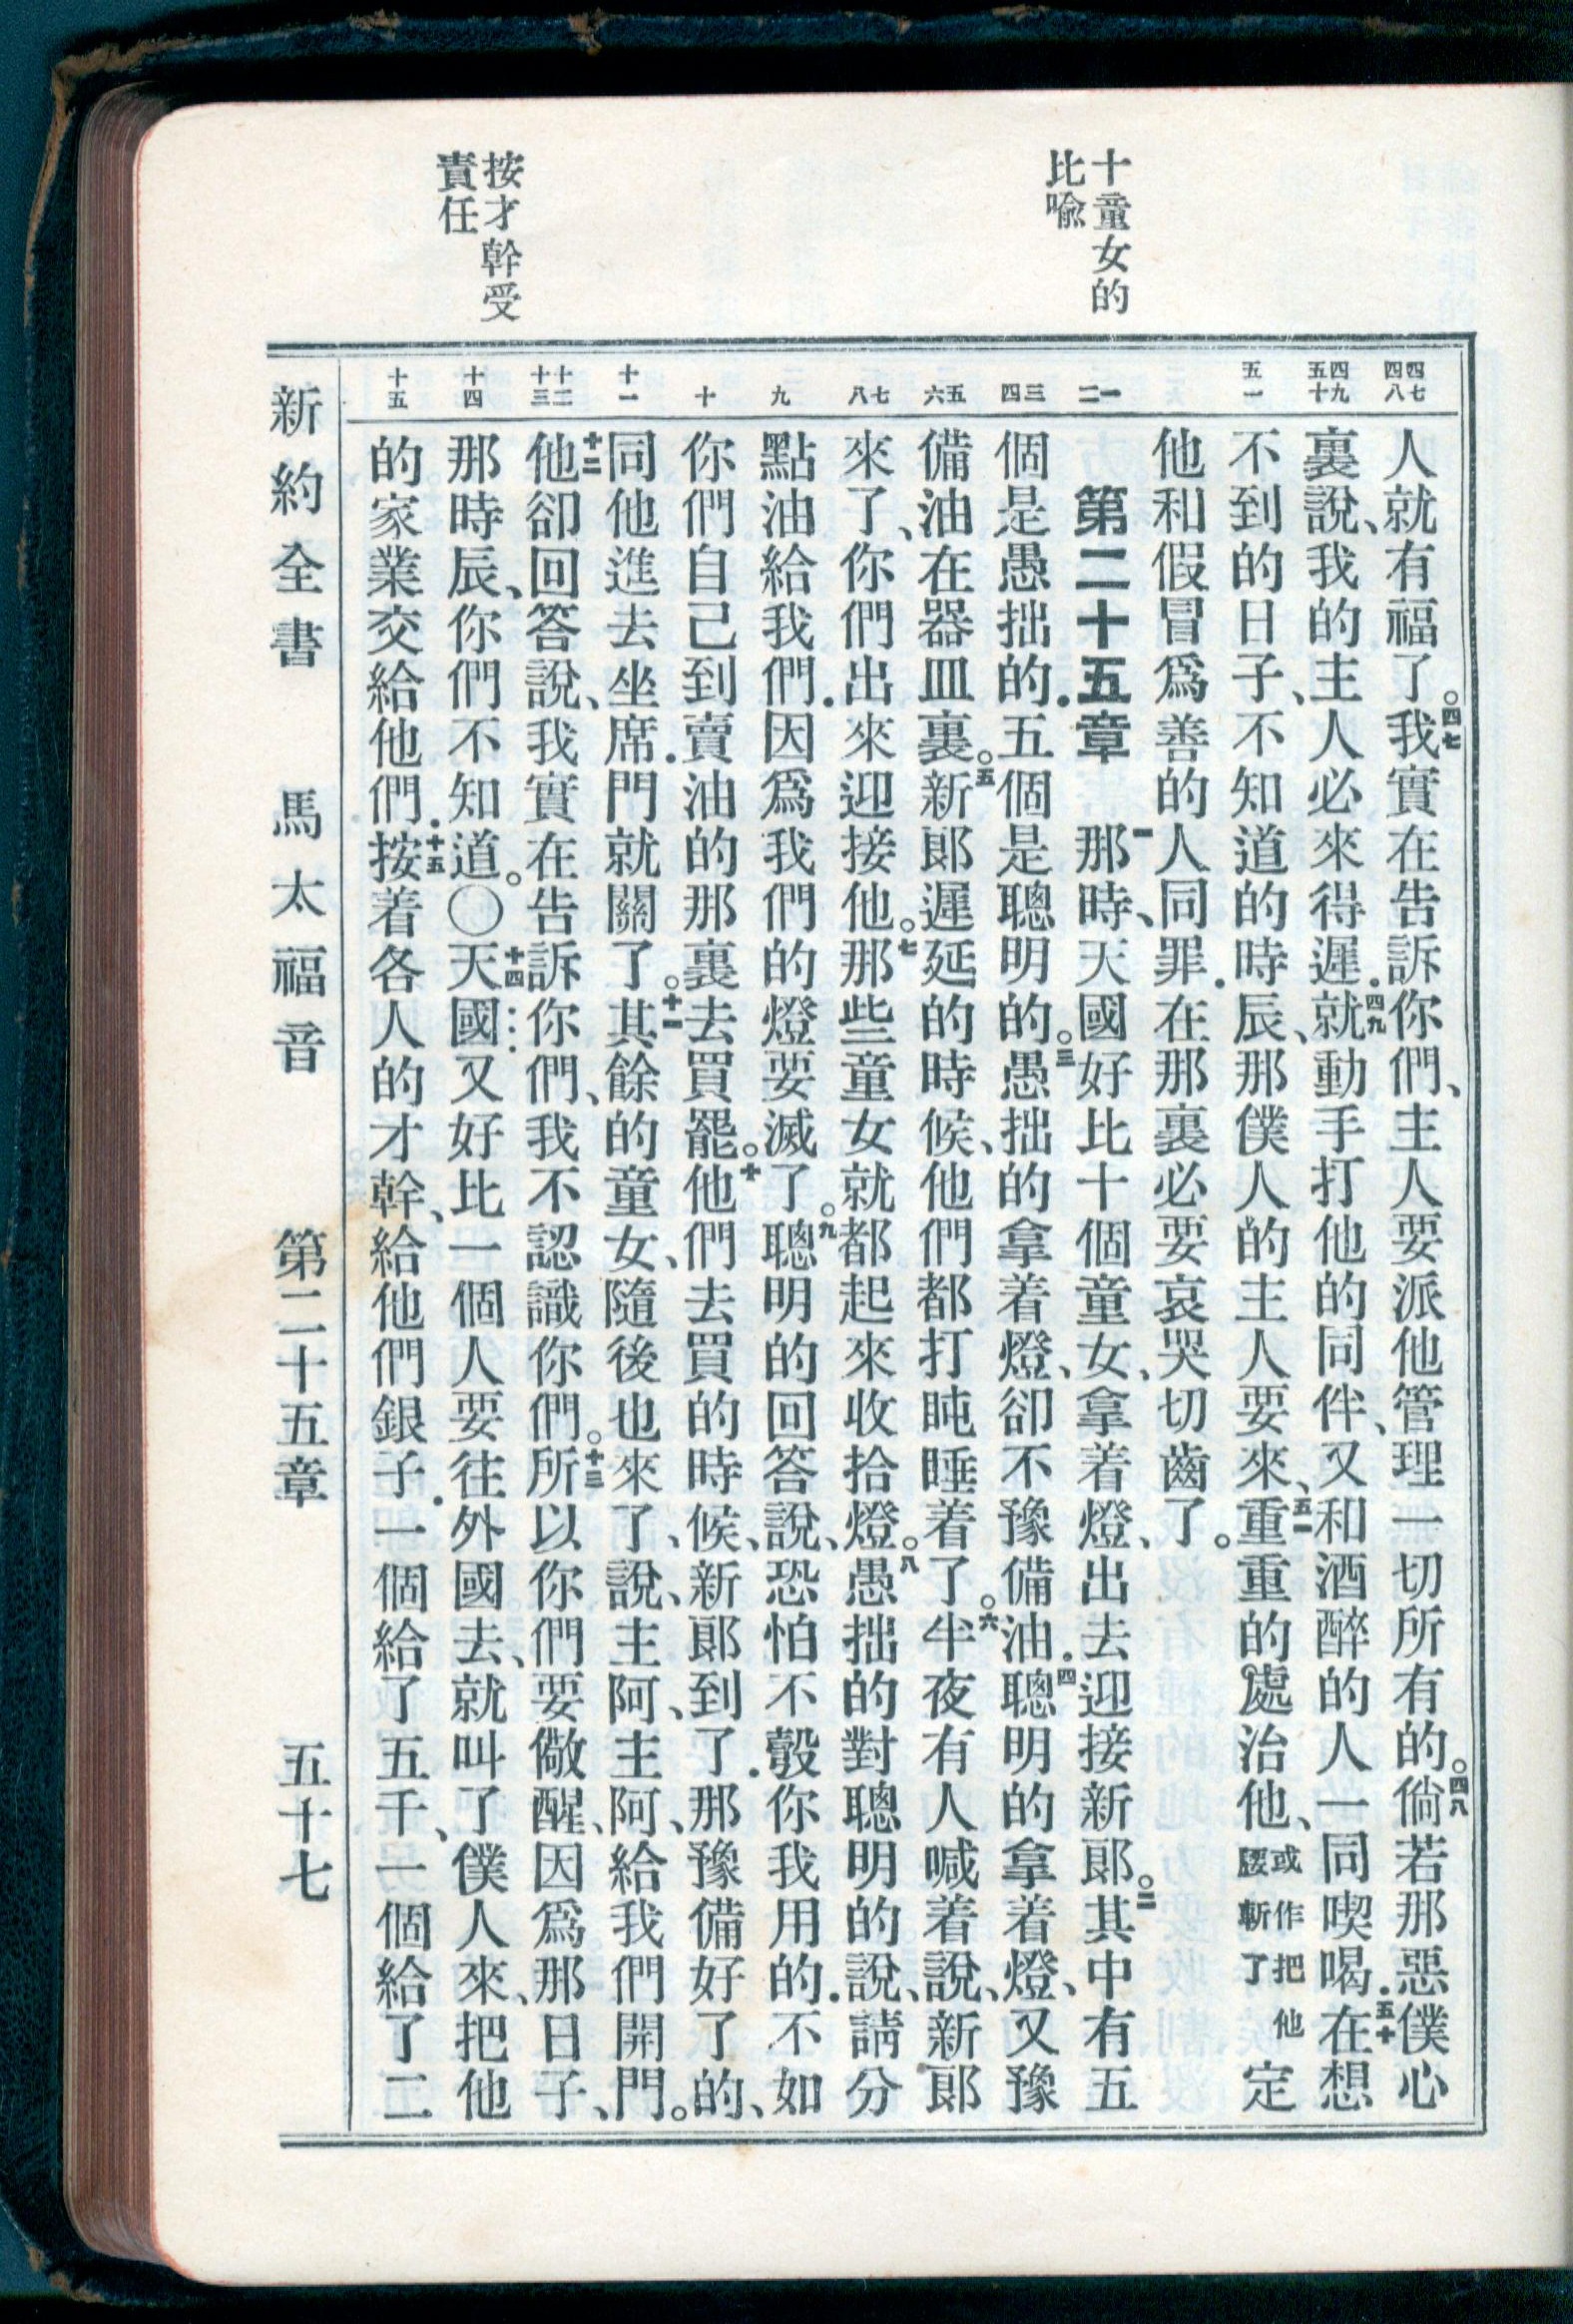 十童女的
比喩
按才幹受
責任
四七
四八
四九
五十
五一
一
二
三
四
五
六
七
八
九
十
十一
十二
十三
十四
十五
人就有福了。四七我實在告訴你們、主人要派他管理一切所有的。四八倘若那惡僕心
裏說、我的主人必來得遲．四九就動手打他的同伴、又和酒醉的人一同喫喝．五十在想
不到的日子、不知道的時辰、那僕人的主人要來、五一重重的處治他、或作把他腰斬了定
他和假冒爲善的人同罪．在那裏必要哀哭切齒了。
第二十五章　一那時、天國好比十個童女、拿着燈、出去迎接新郞。二其中有五
個是愚拙的．五個是聰明的。三愚拙的拿着燈、卻不豫備油．四聰明的拿着燈、又豫
備油在器皿裏。五新郞遲延的時候、他們都打盹睡着了。六半夜有人喊着說、新郞
來了、你們出來迎接他。七那些童女就都起來收拾燈。八愚拙的對聰明的說、請分
點油給我們．因爲我們的燈要滅了。九聰明的回答說、恐怕不彀你我用的．不如
你們自己到賣油的那裏去買罷。十他們去買的時候、新郞到了．那豫備好了的、
同他進去坐席．門就關了。十一其餘的童女、隨後也來了、說、主阿、主阿、給我們開門。
十二他卻回答說、我實在告訴你們、我不認識你們。十三所以你們要儆醒、因爲那日子、
那時辰、你們不知道。〇十四天國又好比一個人要往外國去、就叫了僕人來、把他
的家業交給他們．十五按着各人的才幹、給他們銀子．一個給了五千、一個給了二
新約全書　馬太福音　第二十五章　五十七